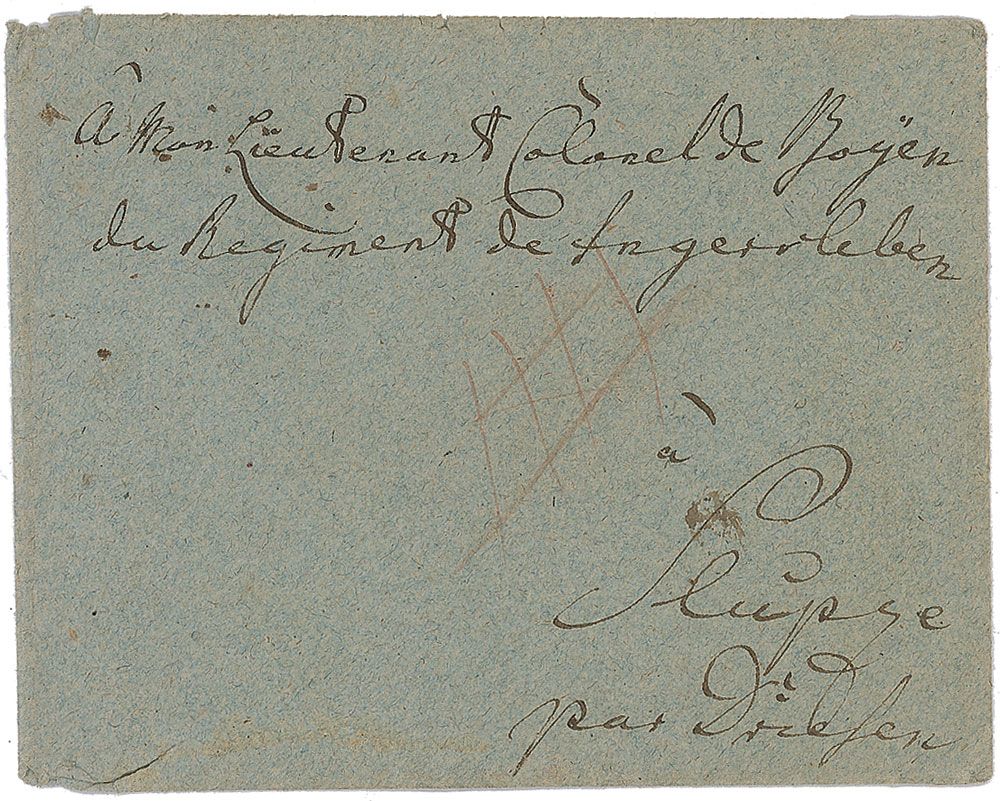 À Mon Lieutenant Colonel de Boÿen
du Regiment de Ingersleben
à
Slupze
par Driesen